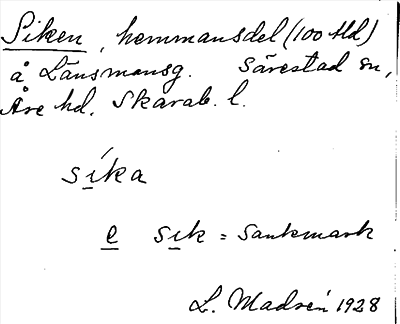 Siken, hemmansdel (100 tld)
å Länsmansg. Särestad sn,
Åse hd. Skarab. l.
síka
e sik = sankmark
L. Madsén 1928